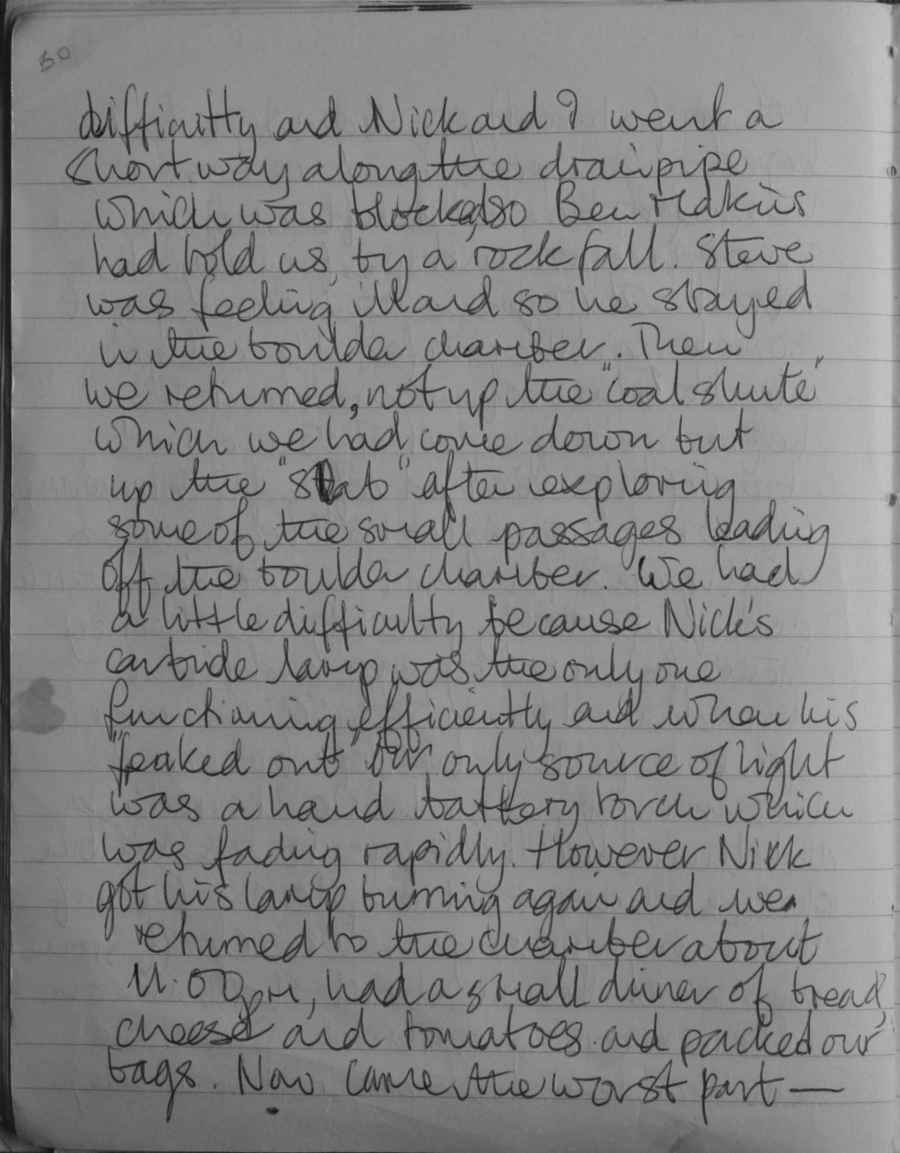 50
difficulty and Nick and I went a
short way along the drainpipe
which was blocked, so Ben
had told us, by a rock fall. Steve
was feeling ill and so he stayed
in the boulder chamber. Then
we returned, not up the "coal shute"
which we had come down but
up the "slab" after exploring
some of the small passages leading
off the boulder chamber. We had
a little difficulty because Nick's
carbide lamp was the only one
functioning efficiently and when his
"peaked out" our only source of light
was a hand battery torch which
was fading rapidly. However Nick
got his lamp burning again and we
returned to the chamber about
11.00pm, had a small dinner of bread,
cheese and tomatoes and packed our
bags. Now came the worst part —